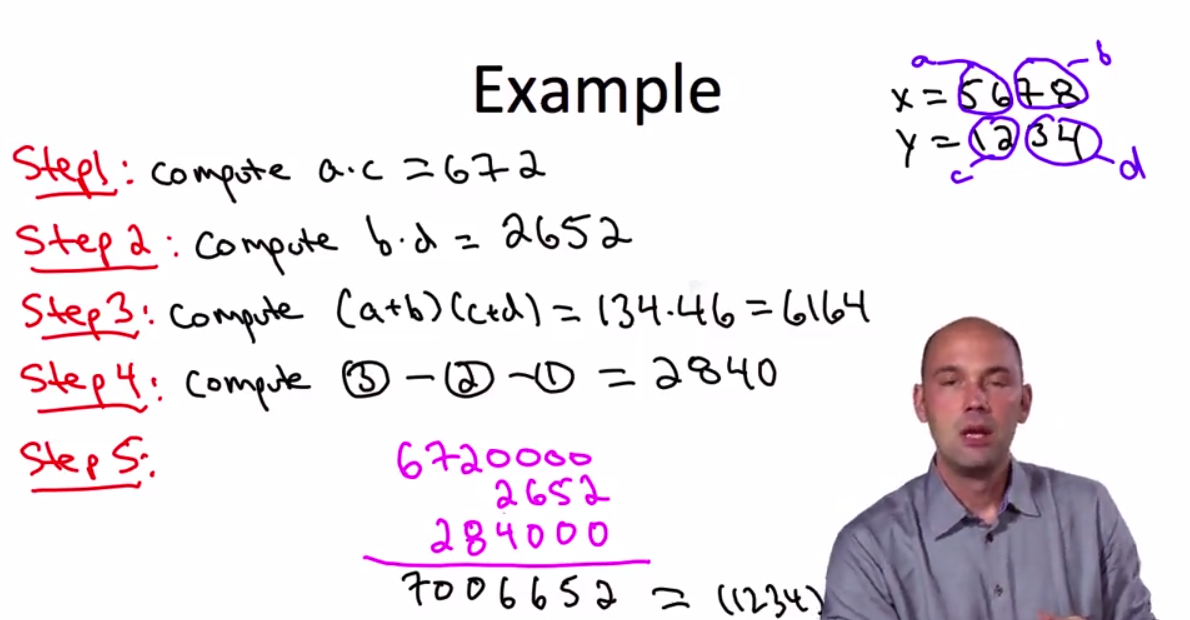 Example
a b
x = 5678
y = 1234
c d
Step1: compute a·c = 672
Step 2: compute b·d = 2652
Step3: compute (a+b)(c+d) = 134·46 = 6164
Step 4: compute ③ - ② - ① = 2840
Step 5:
6720000
2652
284000
7006652 = (1234)